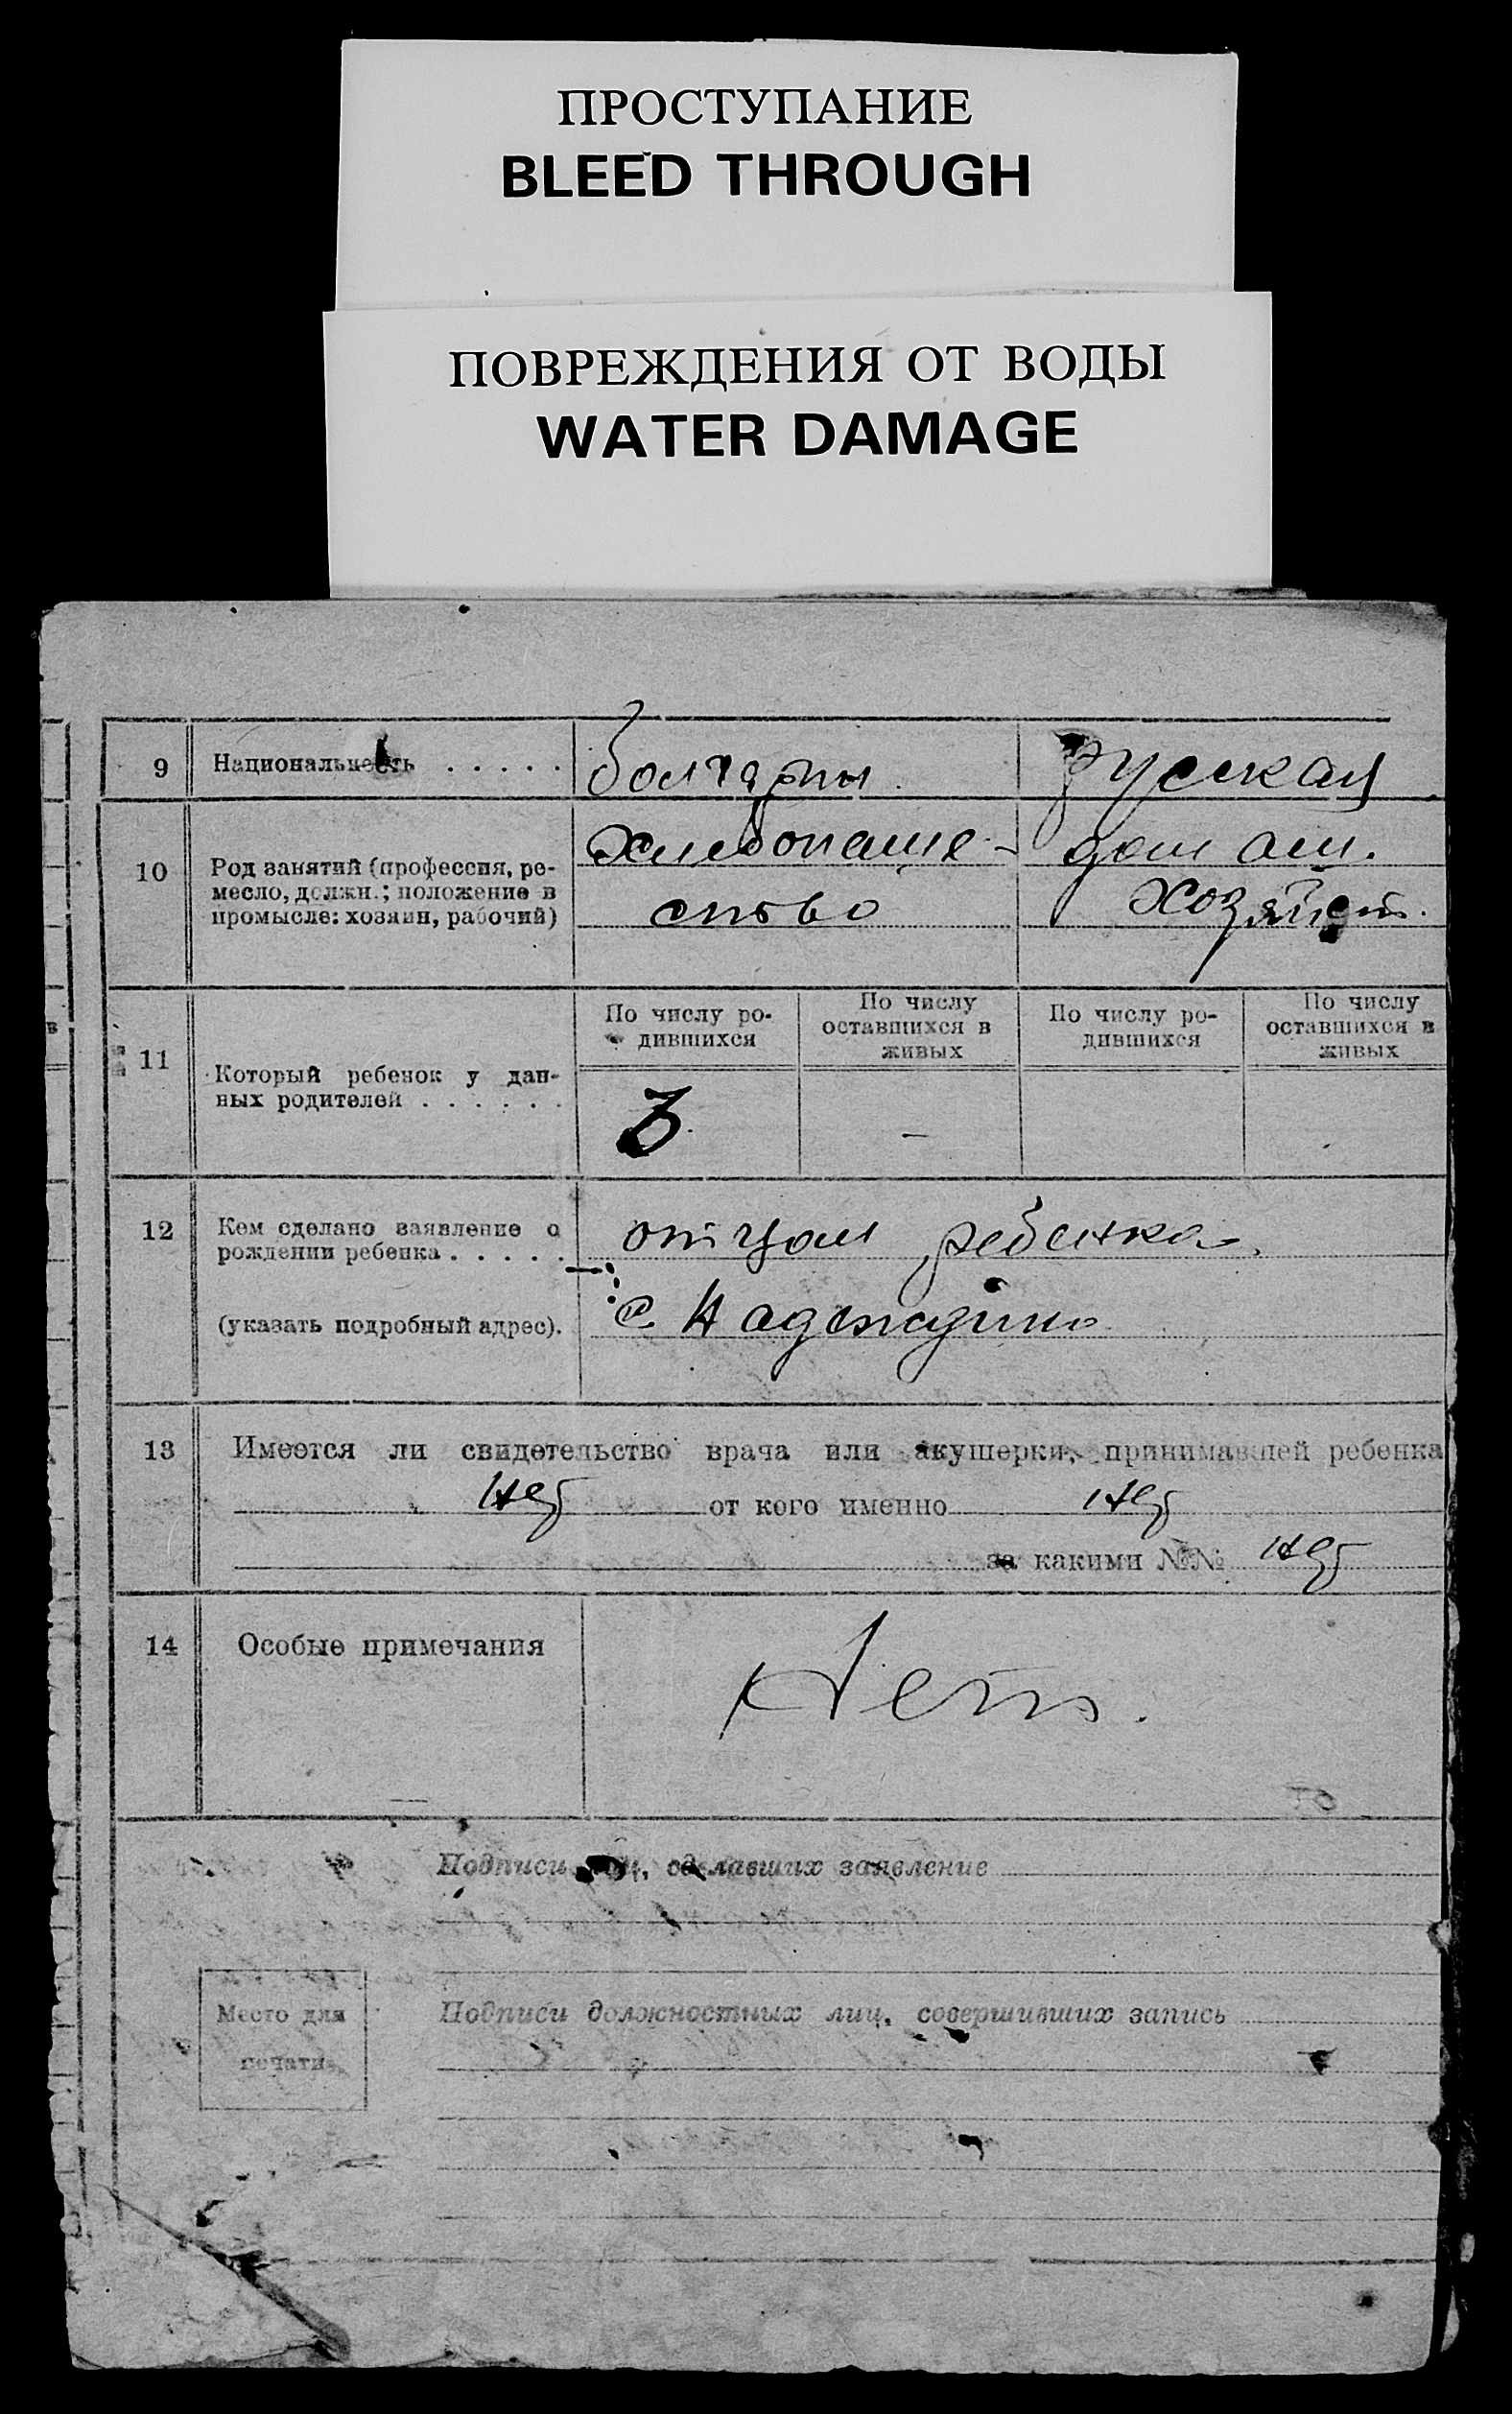 ПРОСТУПАНИЕ
BLEED THROUGH
ПОВРЕЖДЕНИЯ ОТ ВОДЫ
WATER DAMAGE
9 Национальность . . . . . Болгары. Русская
10 Род занятий (профессия, ре-
месло, должн.; положение в
промысле: хозяин, рабочий)
Хлебопаше-
ство
дом ам.
хозяйст.
11 Который ребенок у дан-
ных родителей . . . . . .
По числу ро-
дившихся
По числу
оставшихся в
живых
По числу ро-
дившихся
По числу
оставшихся в
живых
3. —
12 Кем сделано заявление о
рождении ребенка . . . . .
(указать подробный адрес).
отцом ребенка.
с. Надеждино
13 Имеется ли свидетельство врача или акушерки, принимавшей ребенка
Нет от кого именно Нет
за какими №№ Нет
14 Особые примечания Нет.
Подписи лиц, сделавших заявление
Место для
печати
Подписи должностных лиц, совершивших запись